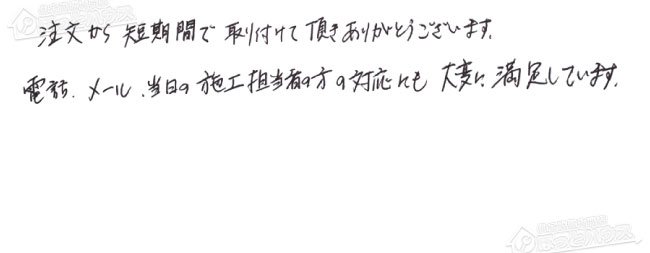 注文から短期間で取り付けて頂きありがとうございます。
電話、メール、当日の施工担当者の方の対応にも大変に満足しています。